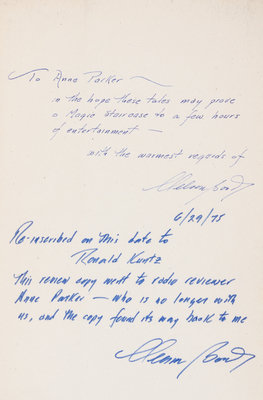 To Anne Parker —
in the hope these tales may prove
a Magic Staircase to a few hours
of entertainment —
with the warmest regards of
Nelson Bond
6/29/75
Re-inscribed on this date to
Ronald Kuntz
This review copy went to radio reviewer
Anne Parker — who is no longer with
us, and the copy found its way back to me
Nelson Bond